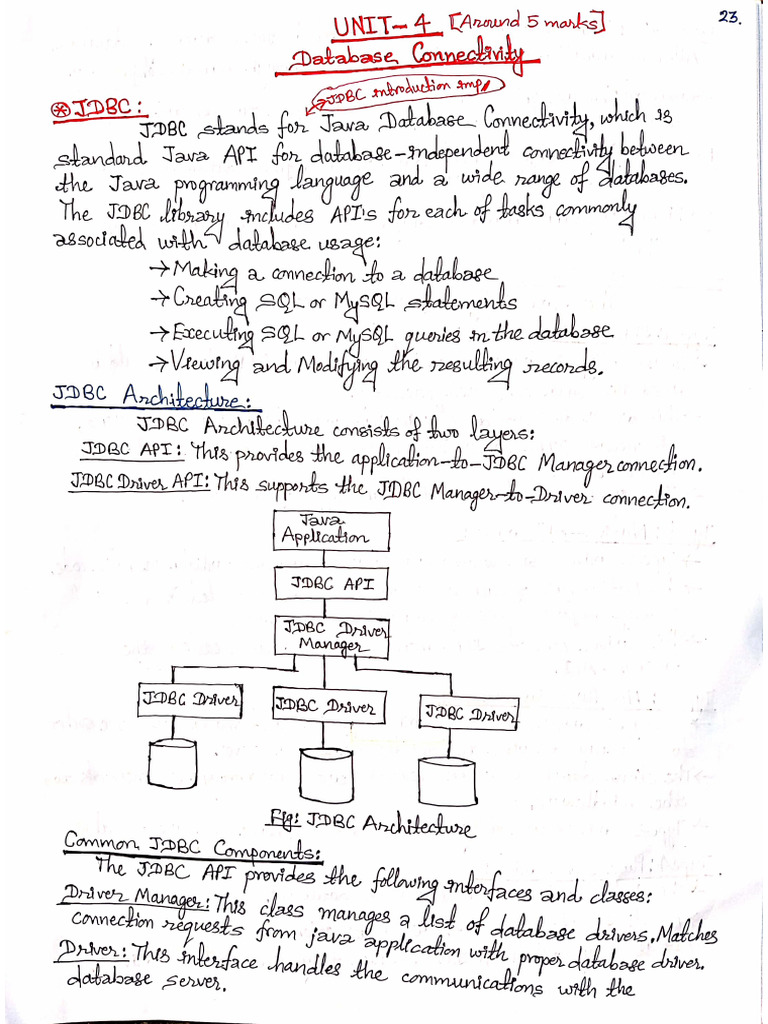 23.
UNIT-4 [Around 5 marks]
Database Connectivity
JDBC introduction imp
⊛JDBC:
JDBC stands for Java Database Connectivity, which is
standard Java API for database-independent connectivity between
the Java programming language and a wide range of databases.
The JDBC library includes API's for each of tasks commonly
associated with database usage:
→Making a connection to a database
→Creating SQL or MySQL statements
→Executing SQL or MySQL queries in the database
→Viewing and Modifying the resulting records.
JDBC Architecture:
JDBC Architecture consists of two layers:
JDBC API: This provides the application-to-JDBC Manager connection.
JDBC Driver API: This supports the JDBC Manager-to-Driver connection.
Java
Application
JDBC API
JDBC Driver
Manager
JDBC Driver JDBC Driver JDBC Driver
Fig: JDBC Architecture
Common JDBC Components:
The JDBC API provides the following interfaces and classes:
Driver Manager: This class manages a list of database drivers. Matches
connection requests from java application with proper database driver.
Driver: This interface handles the communications with the
database server.